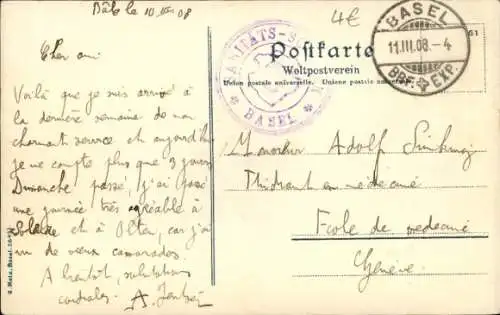 Bâle le 10 III 08
4€
Cher ami
Voilà que je suis arrivé à
la dernière semaine de mon
charmant service et aujourd'hui
je ne compte plus que 3 jours
Dimanche passé, j'ai passé
une journée très agréable à
et à Olten, car j'ai
vu de vieux camarades.
A bientôt, salutations
cordiales. A.
SANITÄTS-S
BASEL
Postkarte
Weltpostverein
Union postale universelle. Unione postale
BASEL
11.III.08.-4
BRF. EXP.
61
Monsieur Adolf
Etudiant en médecine
Ecole de médecine
Genève.
G. Metz, Basel.